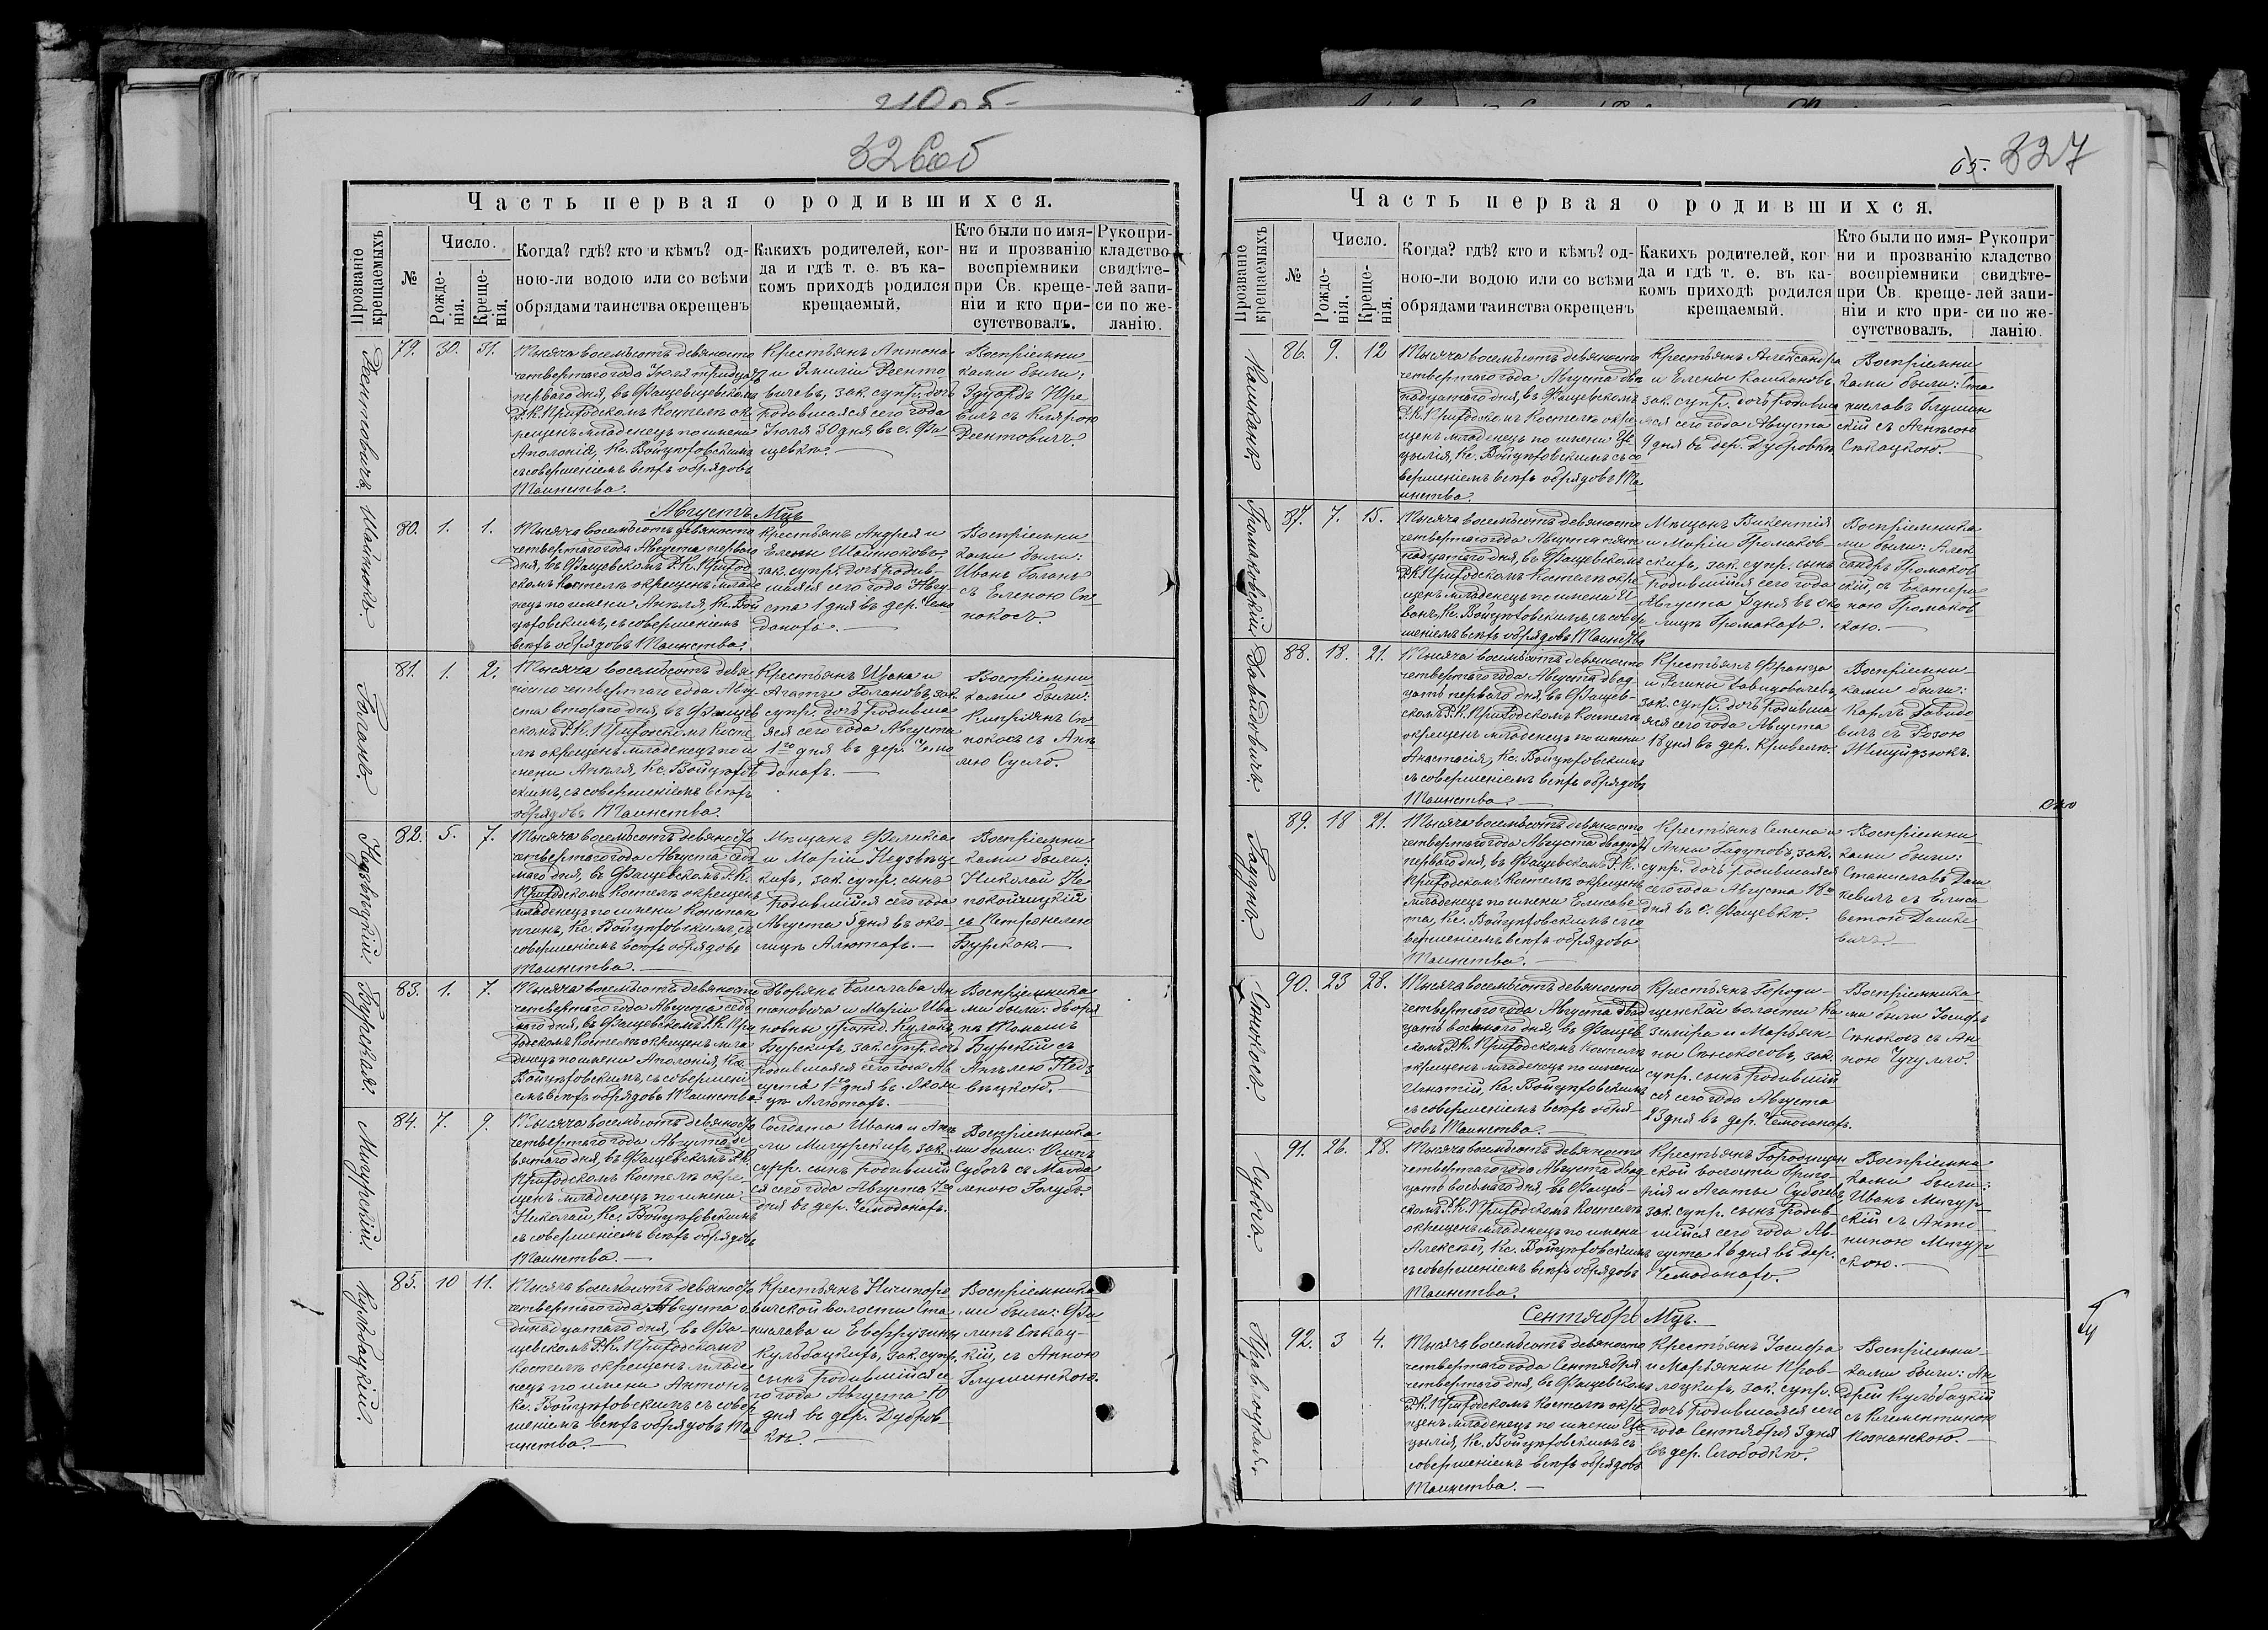 326об
Часть первая о родившихся.
Прозваніе крещаемыхъ
№
Число.
Рожде-
нія.
Креще-
нія.
Когда? гдѣ? кто и кѣмъ? од-
ною-ли водою или со всѣми
обрядами таинства окрещенъ
Какихъ родителей, ког-
да и гдѣ т. е. въ ка-
комъ приходѣ родился
крещаемый.
Кто были по имя-
ни и прозванію
воспріемники
при Св. креще-
ніи и кто при-
сутствовалъ.
Рукопри-
кладство
свидѣте-
лей запи-
си по же-
ланію.
79. 30. 31.
Тысяча восемьсотъ девяносто
четвертаго года Іюля тридцать
перваго дня, въ Фащевщевскомъ
Р.К. Приходскомъ Костелѣ ок-
рещенъ младенецъ по имени
Аполонія, Кс. Войцѣховскимъ
съ совершеніемъ всѣхъ обрядовъ
Таинства.
Крестьянъ Антона
и Эмиліи Деенто
вичевъ, зак. супр. дочь
родившаяся сего года
Іюля 30 дня, въ с. Фа-
щевкѣ.
Воспріемни
ками были:
Эдуардъ Юре
вичъ съ Клярою
Деентовичъ.
Августъ Мцъ
Шайнюкъ.
80. 1. 1.
Тысяча восемьсотъ девяносто
четвертаго года Августа перваго
дня, въ Фащевскомъ Р.К. Приход
скомъ Костелѣ окрещенъ младе
нецъ по имени Анѣля, Кс. Вой
цѣховскимъ, съ совершеніемъ
всѣхъ обрядовъ Таинства.
Крестьянъ Андрея и
Елены Шайнюковъ
зак. супр. дочь родив-
шаяся сего года Авгу-
ста 1 дня въ дер. Чемо
данахъ.
Воспріемни
ками были:
Иванъ Голанъ
съ Еленою Сѣ
нокосъ.
Голанъ.
81. 1. 2.
Тысяча восемьсотъ девя
носто четвертаго года Авгу-
ста второго дня, въ Фащев
скомъ Р.К. Приходскомъ Косте
лѣ окрещенъ младенецъ по и
мени Анѣля, Кс. Войцѣхов
скимъ, съ совершеніемъ всѣхъ
обрядовъ Таинства.
Агаты Голановъ, зак.
супр. дочь родивша
яся сего года Августа
1го дня въ дер. Чемо
данахъ.
Воспріемни
ками были:
Кипріянъ Сѣ
нокосъ съ Анѣ
лею Сусло.
82. 5. 7.
Тысяча восемьсотъ девяносто
четвертаго года Августа седь
маго дня, въ Фащевскомъ Р.К.
Приходскомъ Костелѣ окрещенъ
младенецъ по имени Констан
тинъ, Кс. Войцѣховскимъ, съ
совершеніемъ всѣхъ обрядовъ
Таинства.
Мѣщанъ Феликса
и Маріи Недзвѣц
кихъ, зак. супр. сынъ
родившійся сего года
Августа 5 дня въ око-
лицѣ Алютахъ.
Воспріемни
ками были:
Николай Не
покойчицкій
съ Петронелею
Бурскою.
Бурская.
83. 1. 7.
Тысяча восемьсотъ девяносто
четвертаго года Августа седь
маго дня, въ Фащевскомъ Р.К. При
ходскомъ Костелѣ окрещенъ мла
денецъ по имени Аполонія, Кс.
Войцѣховскимъ, съ совершені
емъ всѣхъ обрядовъ Таинства.
Дворянъ Болеслава Ан
тоновича и Маріи Ива
новны урожд. Кулакъ
Бурскихъ, зак. супр. дочь
родившаяся сего года Ав
густа 1го дня въ околи
цѣ Алютахъ.
Воспріемника
ми были: дворя
не Жонамъ
Бурскій съ
Анѣлею Недз
вѣцкою.
Мигурскій.
84. 7. 9.
Тысяча восемьсотъ девяносто
четвертаго года Августа де
вятаго дня, въ Фащевскомъ Р.К.
Приходскомъ Костелѣ окре-
щенъ младенецъ по имени
Николай, Кс. Войцѣховскимъ
съ совершеніемъ всѣхъ обрядовъ
Таинства.
Солдата Ивана и Анѣ
ли Мигурскихъ, зак.
супр. сынъ родившій
ся сего года Августа 7го
дня въ дер. Чемоданахъ.
Воспріемника
ми были: Осипъ
Субочъ съ Магда
леною Голубъ.
Кульбацкій.
85. 10 11.
Тысяча восемьсотъ девяносто
четвертаго года, Августа о
динадцатаго дня, въ Фа-
щевскомъ Р.К. Приходскомъ
Костелѣ окрещенъ младе
нецъ по имени Антонъ
Кс. Войцѣховскимъ съ совер
шеніемъ всѣхъ обрядовъ Та
инства.
Крестьянъ Ничипоро
вичской волости Ста
нислава и Евфрузины
Кульбацкихъ, зак. супр.
сынъ родившійся се
го года Августа 10
дня въ дер. Дубров
кѣ.
Воспріемника
ми были: Фи
липъ Сѣкац-
кій, съ Анною
Глушинскою.
65. 327
Часть первая о родившихся.
Прозваніе крещаемыхъ
№
Число.
Рожде-
нія.
Креще-
нія.
Когда? гдѣ? кто и кѣмъ? од-
ною-ли водою или со всѣми
обрядами таинства окрещенъ
Какихъ родителей, ког-
да и гдѣ т. е. въ ка-
комъ приходѣ родился
крещаемый.
Кто были по имя-
ни и прозванію
воспріемники
при Св. креще-
ніи и кто при-
сутствовалъ.
Рукопри-
кладство
свидѣте-
лей запи-
си по же-
ланію.
Калиханъ.
86. 9. 12
Тысяча восемьсотъ девяносто
четвертаго года Августа двѣ
надцатаго дня, въ Фащевскомъ
Р.К. Приходскомъ Костелѣ окре-
щенъ младенецъ по имени Це
цылія, Кс. Войцѣховскимъ съ со
вершеніемъ всѣхъ обрядовъ Та
инства.
Крестьянъ Александра
и Елены Калихановъ
зак. супр. дочь родивша
яся сего года Августа
9 дня въ дер. Дубровкѣ
Воспріемни
ками были: Ста
ниславъ Глушин
скій съ Агнѣсою
Сѣкацкою.
Громаковскій
87. 7. 15.
Тысяча восемьсотъ девяносто
четвертаго года Августа пят
надцатаго дня, въ Фащевскомъ
Р.К. Приходскомъ Костелѣ окре
щенъ младенецъ по имени И
ванъ, Кс. Войцѣховскимъ, съ совер
шеніемъ всѣхъ обрядовъ Таинства
Мѣщанъ Викентія
и Маріи Громаков-
скихъ, зак. супр. сынъ
родившійся сего года
Августа 7 дня въ око
лицѣ Громакахъ.
Воспріемника
ми были: Алек
сандръ Громаков
скій, съ Екатери
ною Громаков
скою.
Давидовичъ.
88. 18. 21.
Тысяча восемьсотъ девяносто
четвертаго года Августа двад
цать перваго дня, въ Фащев-
скомъ Р.К. Приходскомъ Костелѣ
окрещенъ младенецъ по имени
Анастасія, Кс. Войцѣховскимъ
съ совершеніемъ всѣхъ обрядовъ
Таинства.
Крестьянъ Франца
и Регины Давидовичевъ
зак. супр. дочь родивша-
яся сего года Августа
18 дня въ дер. Кривелѣ.
Воспріемни-
ками были:
Карлъ Давидо
вичъ съ Розою
Гадунъ.
89. 18 21.
Тысяча восемьсотъ девяносто
четвертаго года Августа двадцать
перваго дня, въ Фащевскомъ Р.К.
Приходскомъ Костелѣ окрещенъ
младенецъ по имени Елисаве-
та, Кс. Войцѣховскимъ съ со
вершеніемъ всѣхъ обрядовъ
Таинства.
Крестьянъ Семена и
Анны Гадуновъ, зак.
супр. дочь родившаяся
сего года Августа 18го
дня въ с. Фащевкѣ.
Воспріемни-
ками были:
Станиславъ Даш
кевичъ съ Елиса
ветою Дашке
вичъ.
Сѣнокосъ.
90. 23 28.
Тысяча восемьсотъ девяносто
четвертаго года Августа двад
цать восьмаго дня, въ Фащев
скомъ Р.К. Приходскомъ Костелѣ
окрещенъ младенецъ по имени
Игнатій, Кс. Войцѣховскимъ
съ совершеніемъ всѣхъ обря-
довъ Таинства.
Крестьянъ Городи-
щенской волости Ка
зиміра и Марьян-
ны Сѣнокосовъ, зак.
супр. сынъ родившій
ся сего года Августа
23 дня въ дер. Чемоданахъ.
Воспріемника
ми были Іосифъ
Сѣнокосъ съ Ан
ною Чучулло.
Субочъ.
91. 26. 28.
Тысяча восемьсотъ девяносто
четвертаго года Августа двад
цать восьмаго дня, въ Фащев-
скомъ Р.К. Приходскомъ Костелѣ
окрещенъ младенецъ по имени
Алексѣй, Кс. Войцѣховскимъ
съ совершеніемъ всѣхъ обрядовъ
Таинства.
Крестьянъ Городищен
ской волости Григо
рія и Агаты Субочевъ,
зак. супр. сынъ родив-
шійся сего года Ав-
густа 26 дня въ дер.
Чемоданахъ.
Воспріемни
ками были:
Иванъ Мигур-
скій съ Анто-
ниною Мигур
скою.
Сентябрь Мцъ.
Правлоцкая.
92. 3 4.
Тысяча восемьсотъ девяносто
четвертаго года Сентября
четвертаго дня, въ Фащевскомъ
Р.К. Приходскомъ Костелѣ окре
щенъ младенецъ по имени Це
цылія, Кс. Войцѣховскимъ съ
совершеніемъ всѣхъ обрядовъ
Таинства.
Крестьянъ Іосифа
и Марьянны Прав-
лоцкихъ, зак. супр.
дочь родившаяся сего
года Сентября 3 дня
въ дер. Слободкѣ.
Воспріемни-
ками были: Ан
дрей Кульбацкій
съ Клементиною